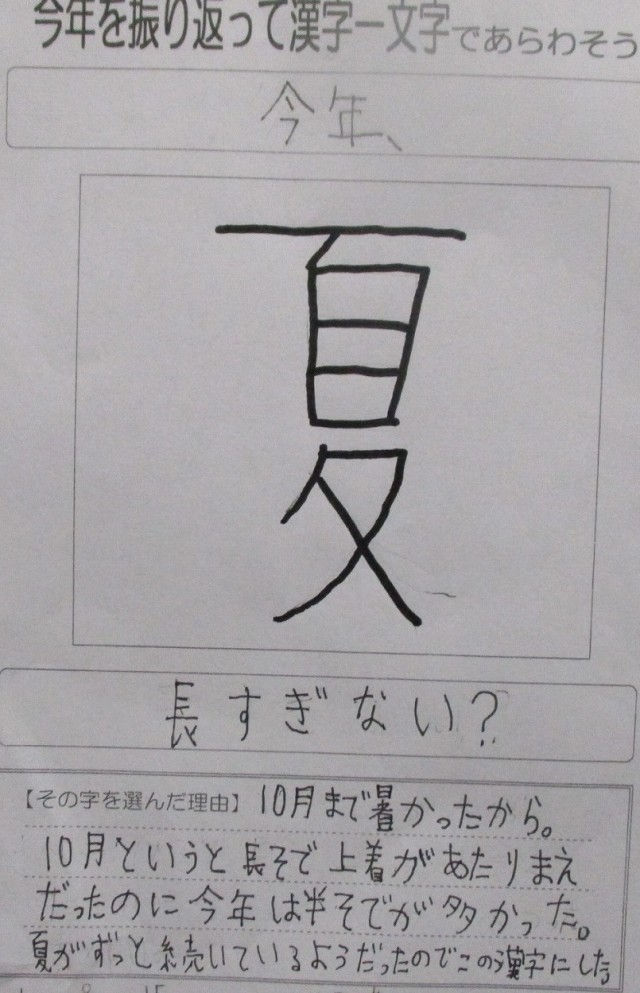 今年を振り返って漢字一文字であらわそう
今年、
夏
長すぎない？
【その字を選んだ理由】10月まで暑かったから。
10月というと長そで上着があたりまえ
だったのに今年は半そでが多かった。
夏がずっと続いているようだったのでこの漢字にした